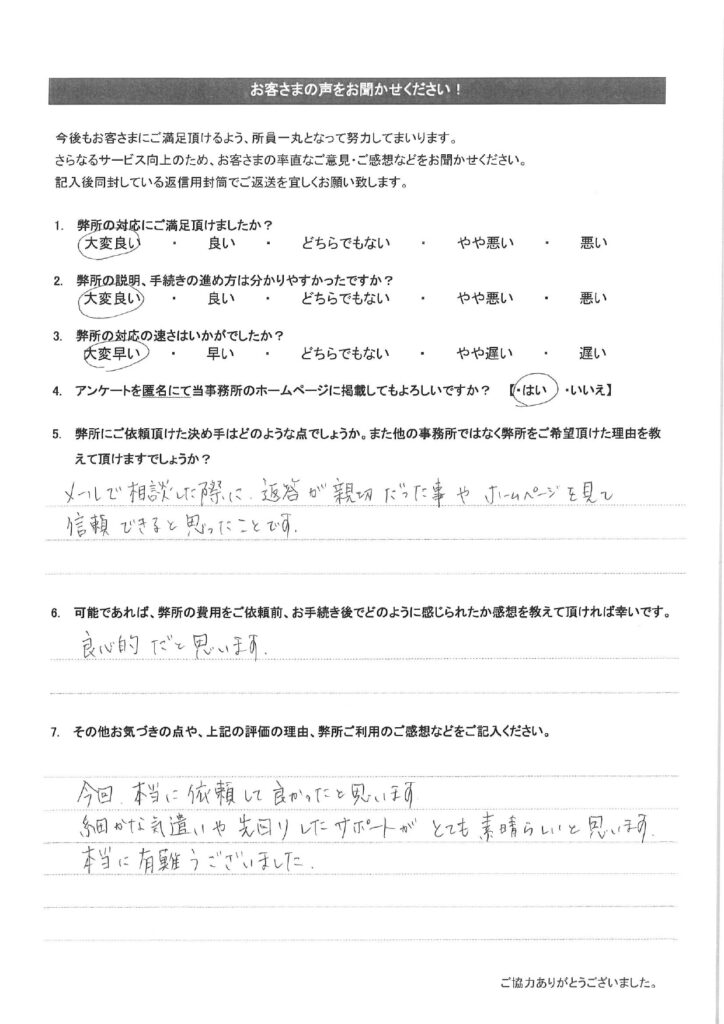 お客さまの声をお聞かせください！
今後もお客さまにご満足頂けるよう、所員一丸となって努力してまいります。
さらなるサービス向上のため、お客さまの率直なご意見・ご感想などをお聞かせください。
記入後同封している返信用封筒でご返送を宜しくお願い致します。
1. 弊所の対応にご満足頂けましたか？
大変良い ・ 良い ・ どちらでもない ・ やや悪い ・ 悪い
2. 弊所の説明、手続きの進め方は分かりやすかったですか？
大変良い ・ 良い ・ どちらでもない ・ やや悪い ・ 悪い
3. 弊所の対応の速さはいかがでしたか？
大変早い ・ 早い ・ どちらでもない ・ やや遅い ・ 遅い
4. アンケートを匿名にて当事務所のホームページに掲載してもよろしいですか？ 【・はい ・いいえ】
5. 弊所にご依頼頂けた決め手はどのような点でしょうか。また他の事務所ではなく弊所をご希望頂けた理由を教
えて頂けますでしょうか？
メールで相談した際に、返答が親切だった事やホームページを見て
信頼できると思ったことです。
6. 可能であれば、弊所の費用をご依頼前、お手続き後でどのように感じられたか感想を教えて頂ければ幸いです。
良心的だと思います。
7. その他お気づきの点や、上記の評価の理由、弊所ご利用のご感想などをご記入ください。
今回、本当に依頼して良かったと思います
細かな気遣いや先回りしたサポートがとても素晴らしいと思います。
本当に有難うございました。
ご協力ありがとうございました。